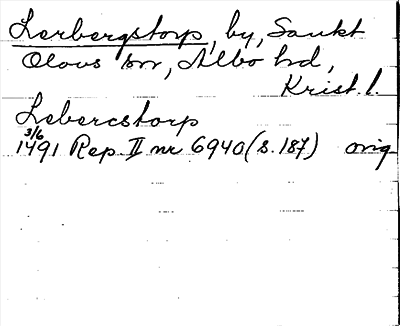 Lerbergstorp, by, Sankt
Olovs sn, Albo hd,
Krist. l.
Lebercstorp
3/6
1491 Rep. II nr 6940 (s. 187) orig